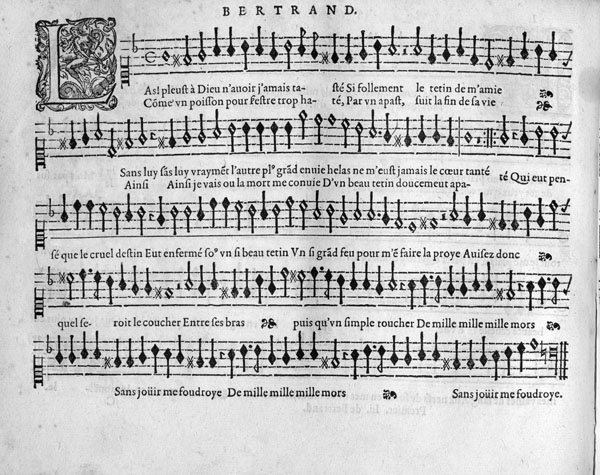 BERTRAND.
LAs! pleust à Dieu n'auoir j'amais ta- sté Si follement le tetin de m'amie
Cõme vn poisson pour s'estre trop ha- té, Par vn apast, suit la fin de sa vie
Sans luy sãs luy vraymẽt l'autre plº grãd enuie helas ne m'eust jamais le cœur tanté
té Qui eut pen-
Ainsi Ainsi je vais ou la mort me conuie D'vn beau tetin doucemeut apa-
sé que le cruel destin Eut enfermé soº vn si beau tetin Vn si grãd feu pour m'ẽ faire la proye Auisez donc
quel se- roit le coucher Entre ses bras puis qu'vn simple toucher De mille mille mille mors
Sans joüir me foudroye De mille mille mille mors Sans joüir me foudroye.